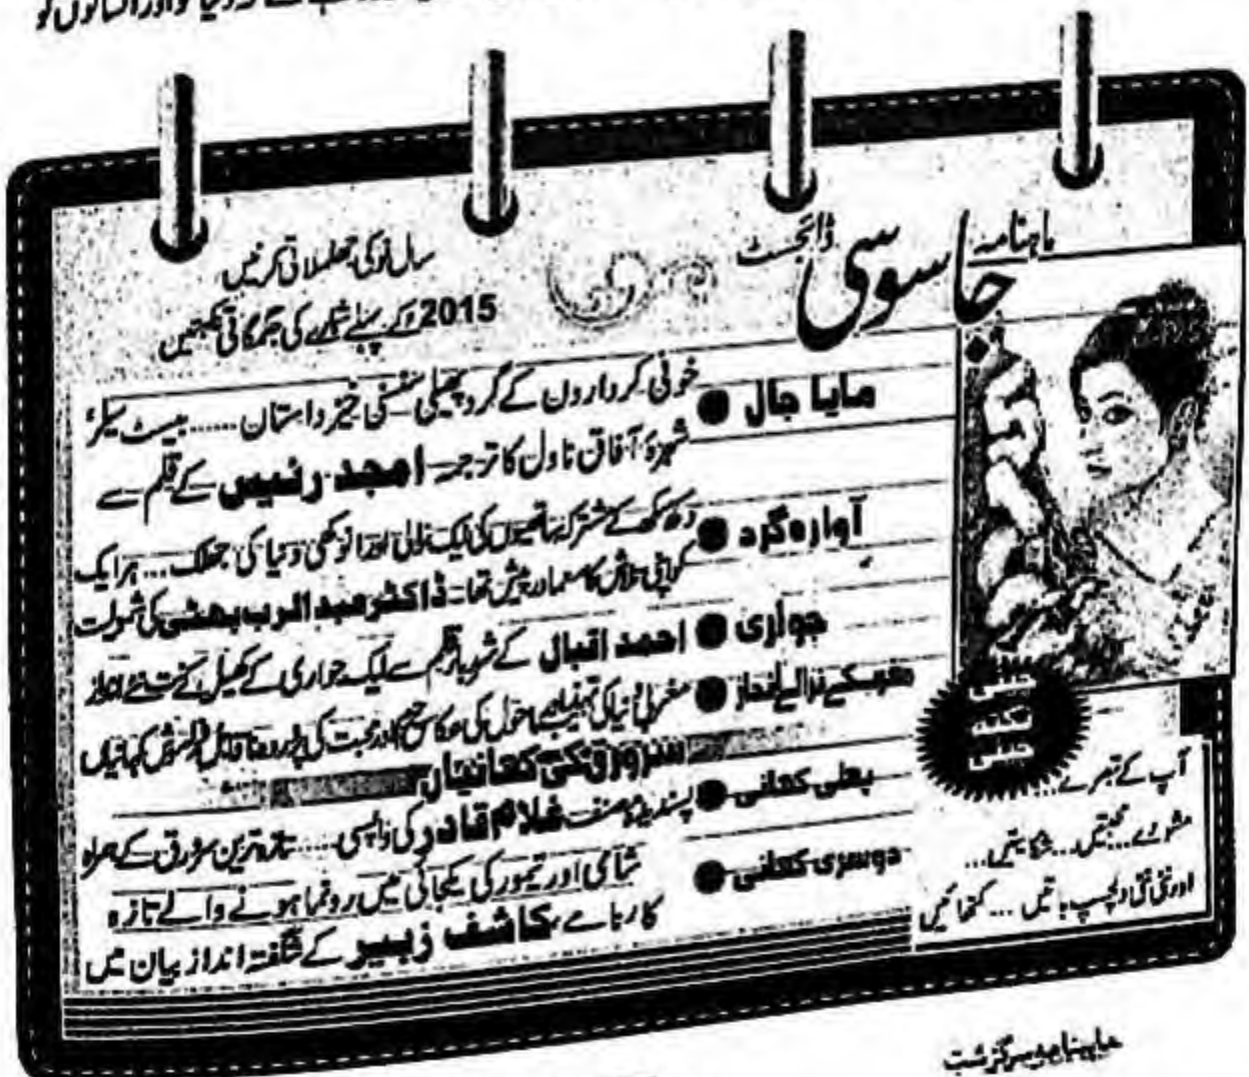 ماہنامہ
جاسوسی
ڈائجسٹ
سالِ نو کی جھلملاتی کرنیں
2015ء کے پہلے شمارے کی جگمگاتی نکہتیں
مایا جال ● خونی کرداروں کے گرد پھیلی سنسنی خیز داستان ...... بیسٹ سیلر
شہرۂ آفاق ناول کا ترجمہ امجد رئیس کے قلم سے
آوارہ گرد ● دکھ سکھ کے مشترکہ ساتھیوں کی ایک ٹولی اور انوکھی دنیا کی جھلک ... ہر ایک
کو اپنی تلاش کا معما درپیش تھا۔ ڈاکٹر عبدالرب بھٹی کی شمولیت
جواری ● احمد اقبال کے قلم سے ایک جواری کے کھیل کے نت نئے انداز
مغرب کے نرالے انداز ● مغربی دنیا کی ماحول کی عکاسی اور محبت کی کہانیاں
سرورق کی کہانیاں
پہلی کہانی ● پسندیدہ مصنف غلام قادر کی واپسی .... تازہ ترین سرورق کے ہمراہ
دوسری کہانی ● شامی اور تیمور کی یکجائی میں رونما ہونے والے تازہ
کارنامے کاشف زبیر کے شگفتہ انداز بیان میں
آپ کے تبصرے...
مشورے... محبتیں... شکایتیں...
اور نئی نئی دلچسپ باتیں ... کتھائیں
ماہنامہ سرگزشت